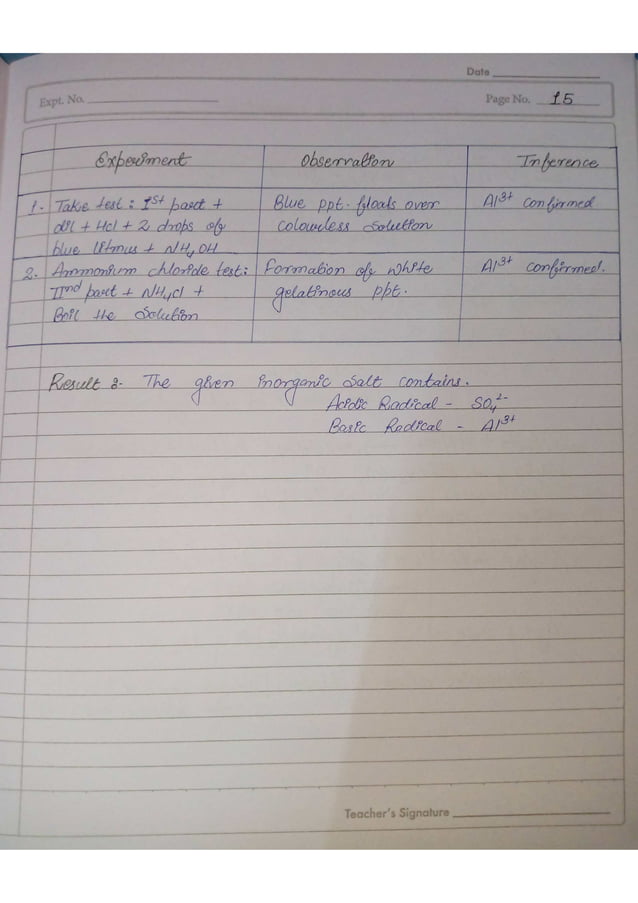 Date
Expt. No.
Page No. 15
Experiment Observation Inference
1. Take test : 1st part + Blue ppt. floats over Al3+ confirmed
dil + Hcl + 2 drops of colourless solution
blue litmus + NH4OH
2. Ammonium chloride test: Formation of white Al3+ confirmed.
IInd part + NH4cl + gelatinous ppt.
Boil the solution
Result :- The given inorganic salt contains.
Acidic Radical - SO4 2-
Basic Radical - Al3+
Teacher's Signature